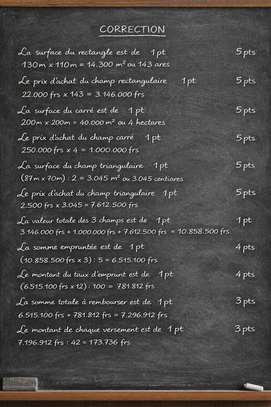 CORRECTION
La surface du rectangle est de 1 pt 5 pts
130 m x 110 m = 14.300 m² ou 143 ares
Le prix d'achat du champ rectangulaire 1 pt 5 pts
22.000 frs x 143 = 3.146.000 frs
La surface du carré est de : 1 pt 5 pts
200m x 200m = 40.000 m² ou 4 hectares
Le prix d'achat du champ carré 1 pt 5 pts
250.000 frs x 4 = 1.000.000 frs
La surface du champ triangulaire 1 pt 5 pts
(87m x 70m) : 2 = 3.045 m² ou 3.045 centiares
Le prix d'achat du champ triangulaire 1 pt 5 pts
2.500 frs x 3.045 = 7.612.500 frs
La valeur totale des 3 champs est de 1 pt 1 pts
3 146.000 frs + 1.000.000 frs + 7 612.500 frs = 10.858.500 frs
La somme empruntée est de 1 pt 4 pts
(10.858.500 frs x 3) : 5 = 6.515.100 frs
Le montant du taux d'emprunt est de 1 pt 4 pts
(6.515.100 frs x 12) : 100 = 781.812 frs
La somme totale à rembourser est de 1 pt 3 pts
6.515.100 frs + 781.812 frs = 7.296.912 frs
Le montant de chaque versement est de 1 pt 3 pts
7.196.912 frs : 42 = 173.736 frs